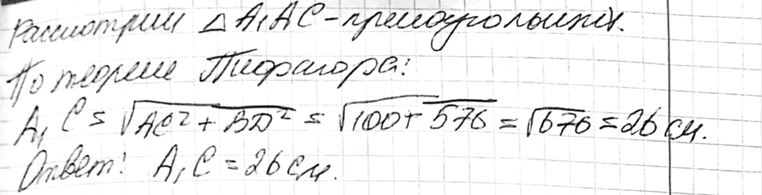 Рассмотрим △ A₁AC - прямоугольный.
По теореме Пифагора:
A₁C = √AC² + BD² = √100 + 576 = √676 = 26 см.
Ответ: A₁C = 26 см.